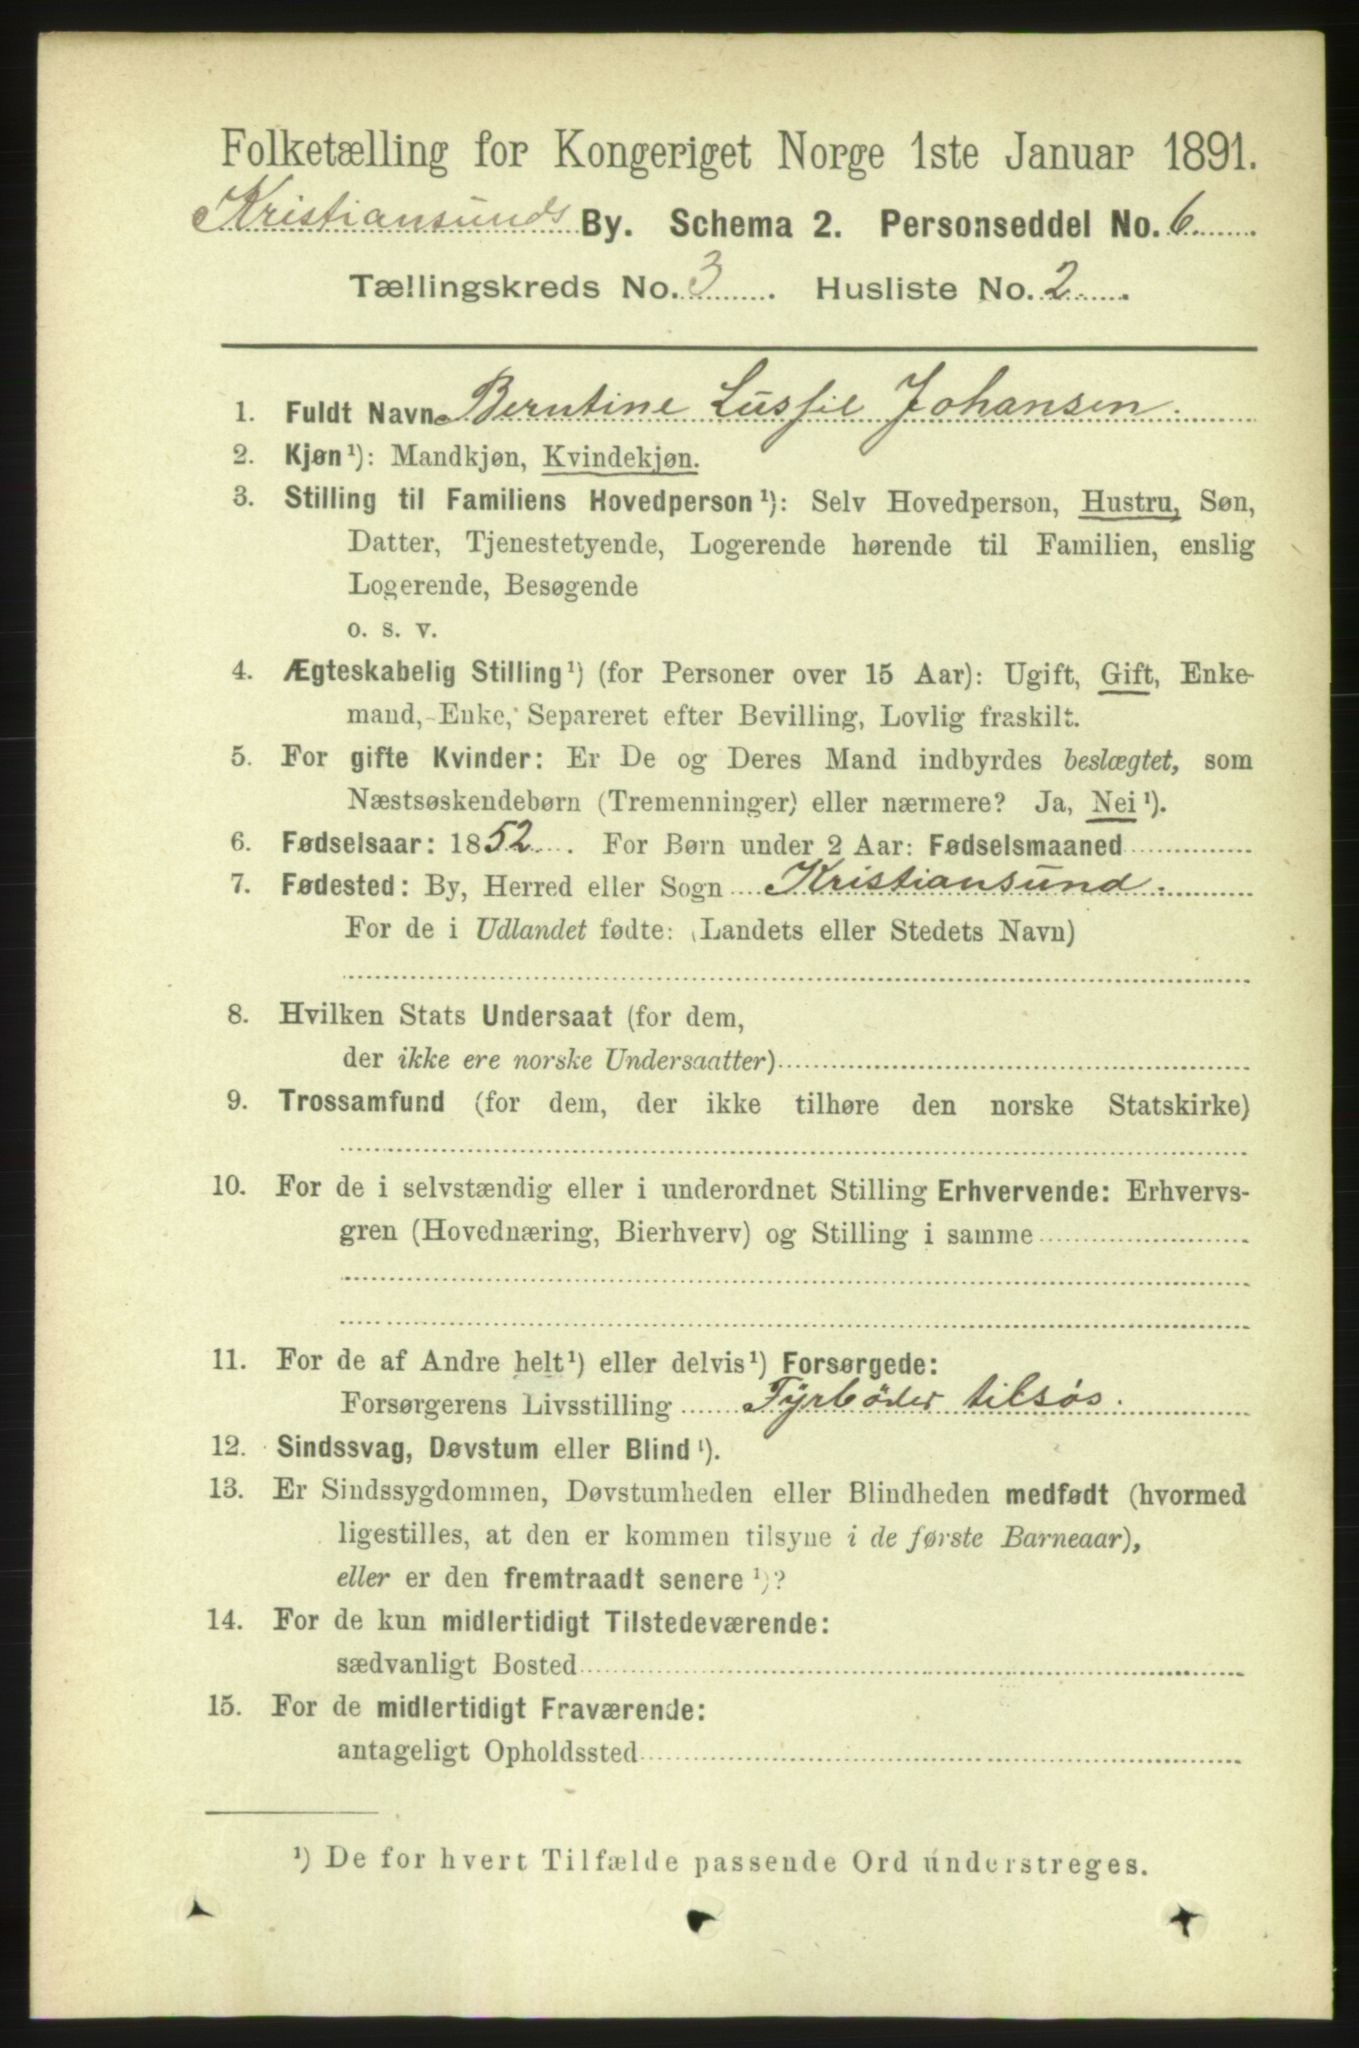 Folketælling for Kongeriget Norge 1ste Januar 1891.
Kristiansunds By. Schema 2. Personseddel No. 6
Tællingskreds No. 3. Husliste No. 2.
1. Fuldt Navn Berntine Lussie Johansen.
2. Kjøn ¹): Mandkjøn, Kvindekjøn.
3. Stilling til Familiens Hovedperson ¹): Selv Hovedperson, Hustru, Søn,
Datter, Tjenestetyende, Logerende hørende til Familien, enslig
Logerende, Besøgende
o. s. v.
4. Ægteskabelig Stilling ¹) (for Personer over 15 Aar): Ugift, Gift, Enke-
mand, Enke, Separeret efter Bevilling, Lovlig fraskilt.
5. For gifte Kvinder: Er De og Deres Mand indbyrdes beslægtet, som
Næstsøskendebørn (Tremenninger) eller nærmere? Ja, Nei ¹).
6. Fødselsaar: 1852. For Børn under 2 Aar: Fødselsmaaned
7. Fødested: By, Herred eller Sogn Kristiansund.
For de i Udlandet fødte: (Landets eller Stedets Navn)
8. Hvilken Stats Undersaat (for dem,
der ikke ere norske Undersaatter)
9. Trossamfund (for dem, der ikke tilhøre den norske Statskirke)
10. For de i selvstændig eller i underordnet Stilling Erhvervende: Erhvervs-
gren (Hovednæring, Bierhverv) og Stilling i samme
11. For de af Andre helt ¹) eller delvis ¹) Forsørgede:
Forsørgerens Livsstilling Fyrbøder tilsøs.
12. Sindssvag, Døvstum eller Blind ¹).
13. Er Sindssygdommen, Døvstumheden eller Blindheden medfødt (hvormed
ligestilles, at den er kommen tilsyne i de første Barneaar),
eller er den fremtraadt senere ¹)?
14. For de kun midlertidigt Tilstedeværende:
sædvanligt Bosted
15. For de midlertidigt Fraværende:
antageligt Opholdssted
¹) De for hvert Tilfælde passende Ord understreges.